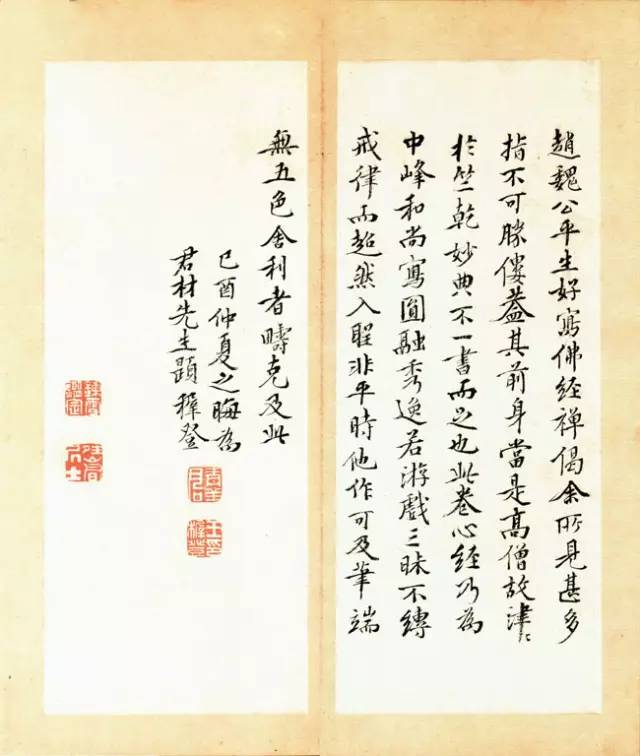 趙魏公平生好寫佛經禅偈余所見甚多
指不可勝僂葢其前身當是高僧故津〻
於竺乾妙典不一書而足也此卷心經乃為
中峰和尚寫圓融秀逸若游戲三昧不縛
戒律而超然入聖非平時他作可及筆端
無五色舍利者疇克及此
己酉仲夏之晦為
君材先生題穉登